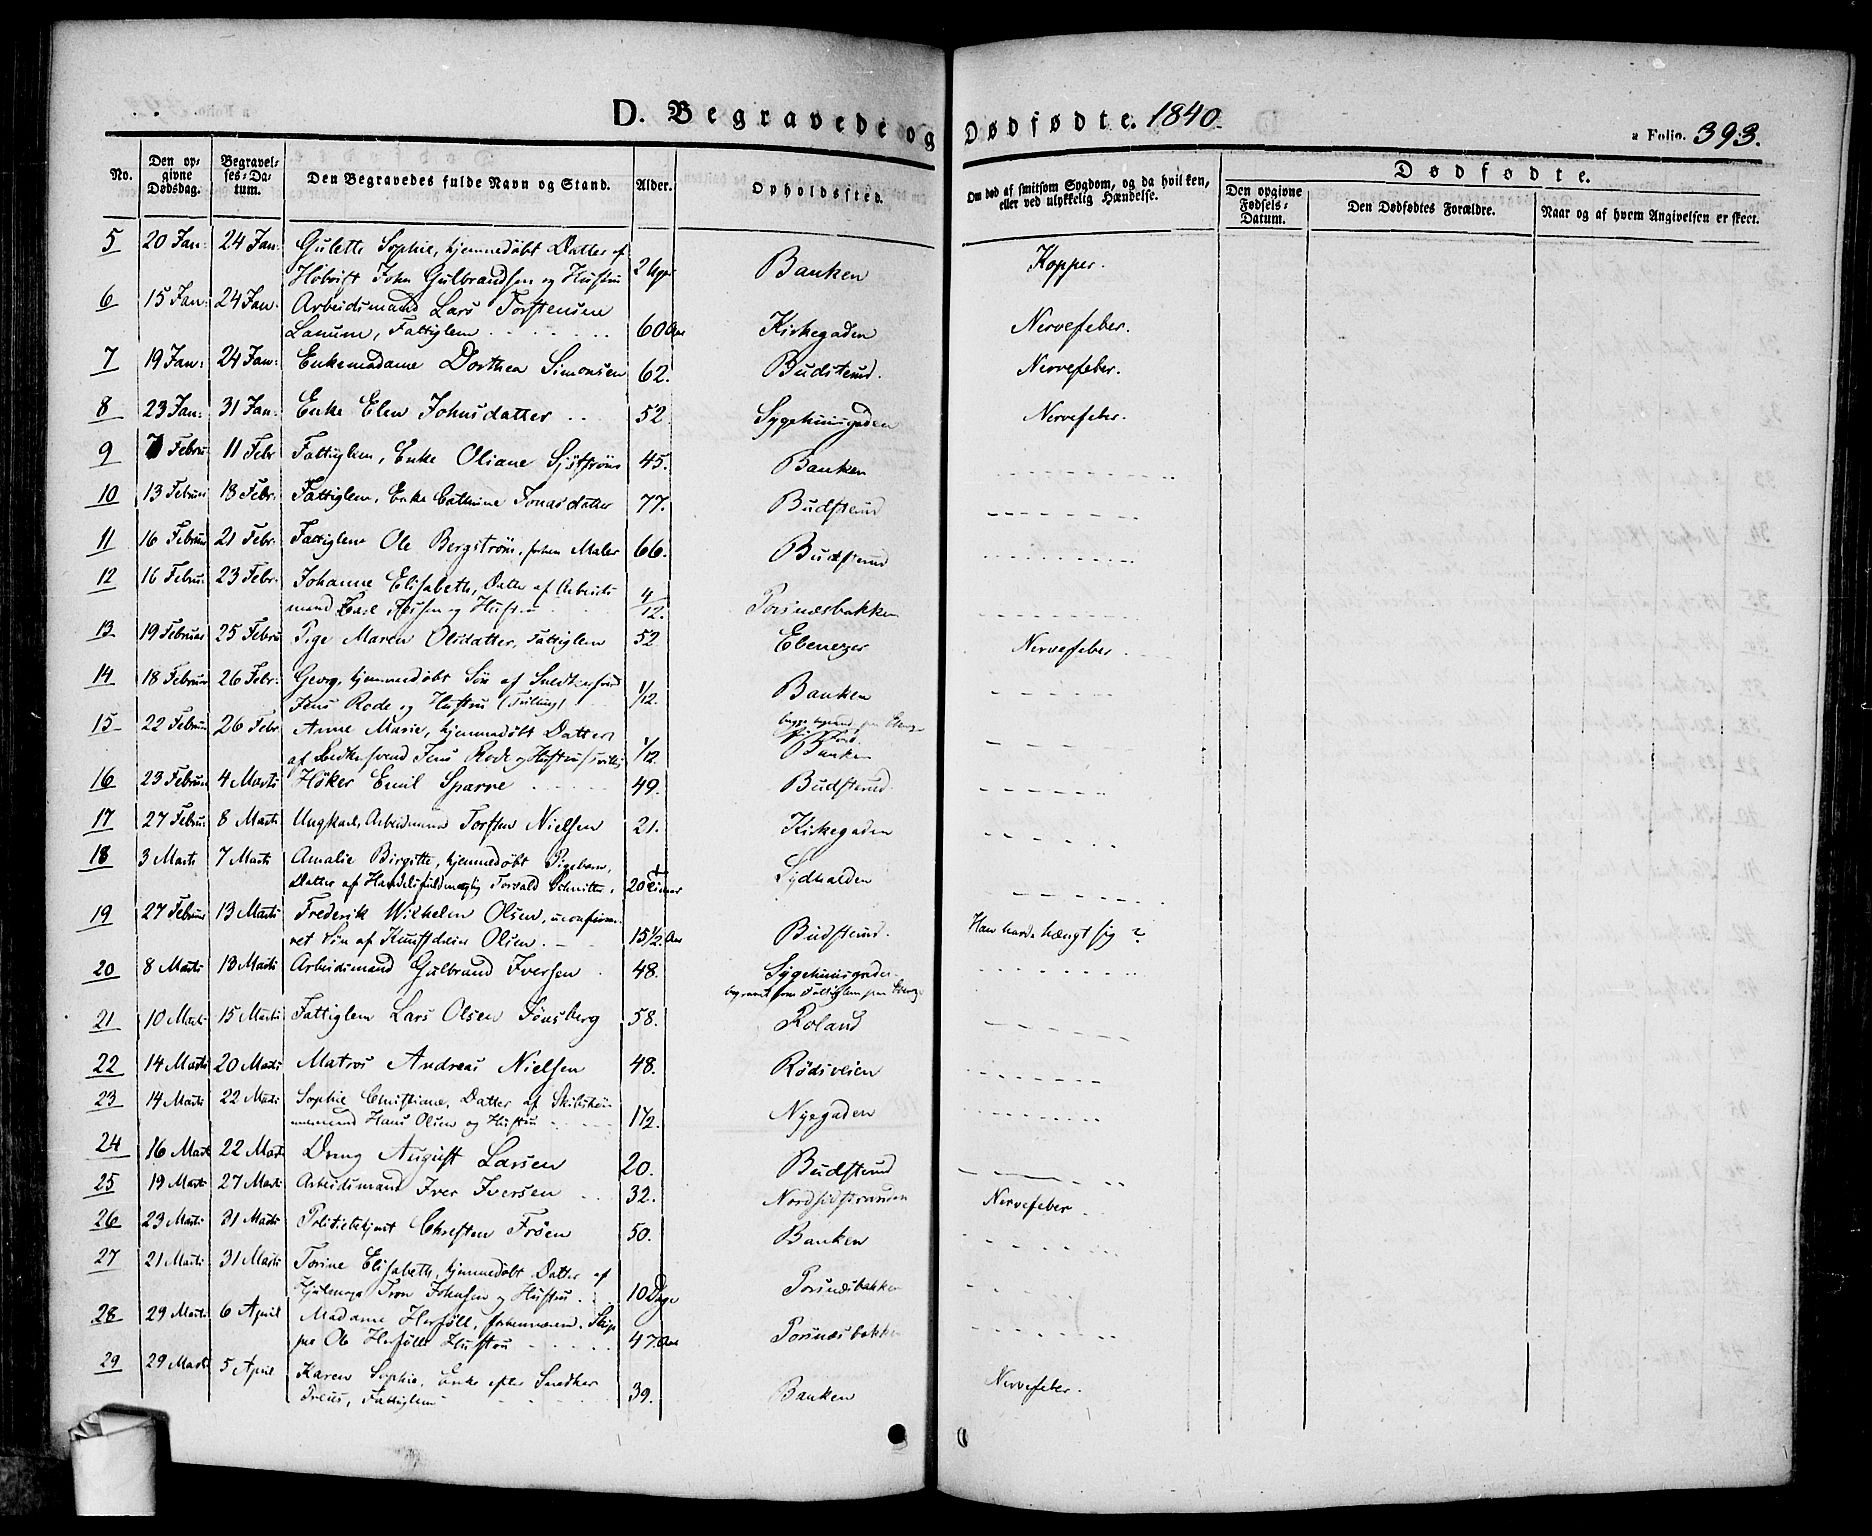 D. Begravede og Dødfødte. 1840.
a Folio. 393.
No. Den opgivne Dødsdag. Begravelses-Datum. Den Begravedes fulde Navn og Stand. Alder. Opholdssted. Om død af smitsom Sygdom, og da hvilken, eller ved ulykkelig Hændelse. Dødfødte.
Den opgivne Fødsels-Datum. Den Dødfødtes Forældre. Naar og af hvem Angivelsen er skeet.
5 20 Jan: 24 Jan: Gulette Sophie, hjemmedøbt Datter af
John Gulbrandsen og Hustru 2 Banken Kopper.
6 15 Jan: 24 Jan: Arbeidsmand Lars Torstensen
Lanum, Fattiglem 60 Aar Kirkegaden Nervefeber.
7 19 Jan: 24 Jan: Enkemadame Dorthea Simonsen 62. Budsterud. Nervefeber.
8 23 Jan: 31 Jan: Enke Elen Johnsdatter 52. Sygehuusgaden Nervefeber.
9 7 Februar 11 Febr Fattiglem, Enke Oliane Sjøstrøm 45. Banken
10 13 Februar 18 Febr: Fattiglem, Enke Cathrine Jonasdatter 77. Budsterud
11 16 Februar 21 Febr. Fattiglem Ole Bergstrøm, forhen Maler 66. Budsterud
12 16 Februar 23 Febr. Johanne Elisabeth, Datter af Arbeids
mand og Hustru 4/12. Torsnæsbakken
13 19 Februar 25 Febru Pige Maren Olsdatter, Fattiglem 52 Ebenezer Nervefeber.
14 18 Februar 26 Febr. Georg, hjemmedøbt Søn af Snedkersvend
Jens Rode og Hustru (Tvilling) 1/12. Banken
15 22 Februar 26 Febr Anne Marie, hjemmedøbt Datter
af Snedkersvend Jens Rode og Hustru 1/12 Banken
16 23 Februar 4 Marts Høker Emil Sparre 49. Budsterud.
17 27 Februar 8 Marts Ungkarl, Arbeidsmand Torsten Nielsen 21. Kirkegaden
18 3 Marts 7 Marts Amalie Birgitte, hjemmedøbt Pigebarn,
Datter af Handelsfuldmægtig Torvald Schmitte 20 Timer Sydhalden
19 27 Februar 13 Marts Frederik Wilhelm Olsen, uconfirme-
ret Søn af Olsen. 15 1/2. Aar Budsterud. Han havde hængt sig ?
20 8 Marts 13 Marts Arbeidsmand Gulbrand Iversen 48. Sygehuusgaden
begravet som Fattiglem paa
21 10 Marts 15 Marts Fattiglem Lars Olsen Tønsberg 58. Roland
22 14 Marts 20 Marts Matros Andreas Nielsen 48. Rødsveien
23 14 Marts 22 Marts Sophie Christiane, Datter af Skibstøm
mermand Hans Olsen og Hustru 1 1/2. Nyegaden
24 16 Marts 22 Marts Dreng August Larsen 20. Budsterud
25 19 Marts 27 Marts Arbeidsmand Iver Iversen 32. Nordsidstranden Nervefeber
26 23 Marts 31 Marts Politiebetjent Christen Frøen 50. Banken
27 21 Marts 31 Marts Torine Elisabeth, hjemmedøbt Datter af
Hjulmager Tron Johnsen og Hustru 10 Dage Torsnæsbakken
28 29 Marts 6 April Madame Herføll, Skip
per Ole Herfølls Hustru 47. Aar Torsnæsbakken
29 29 Marts 5 April Karen Sophie, Enke efter Snedker
Treus, Fattiglem 39. Banken Nervefeber.